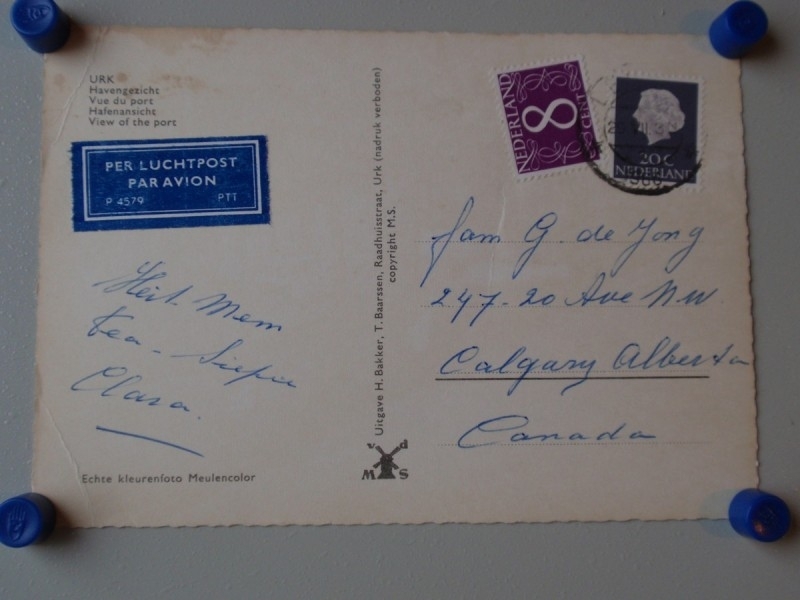 URK
Havengezicht
Vue du port
Hafenansicht
View of the port
PER LUCHTPOST
PAR AVION
P 4579 PTT
Heit. Mem
Clara.
Echte kleurenfoto Meulencolor
Uitgave H. Bakker, T. Baarssen, Raadhuisstraat, Urk (nadruk verboden)
copyright M.S.
v d
M S
NEDERLAND
8
CENT
20 C
NEDERLAND
fam G. de Jong
247-20 Ave N W
Calgary Alberta
Canada